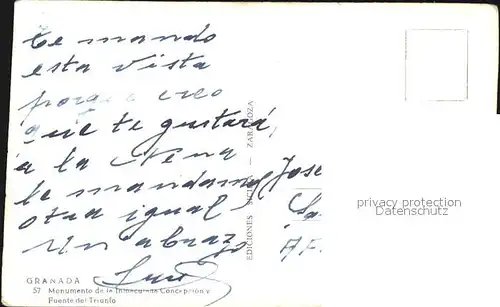 Te mando
esta vista
porque creo
que te gustará,
a la Nena
le mandamos Jose
otra igual
Un abrazo
Luis
EDICIONES SICILIA — ZARAGOZA
privacy protection
Datenschutz
GRANADA
57 Monumento de la Inmaculada Concepción y
Fuente del Triunfo